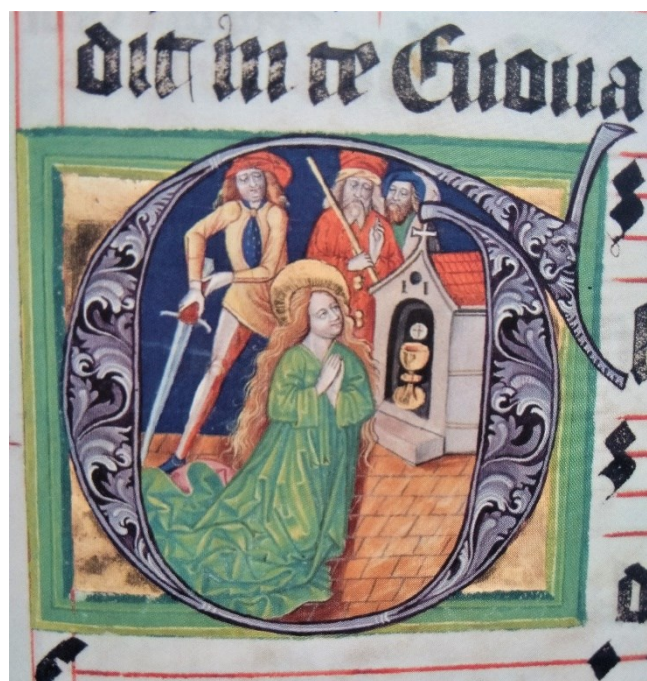 dit in te Euoua